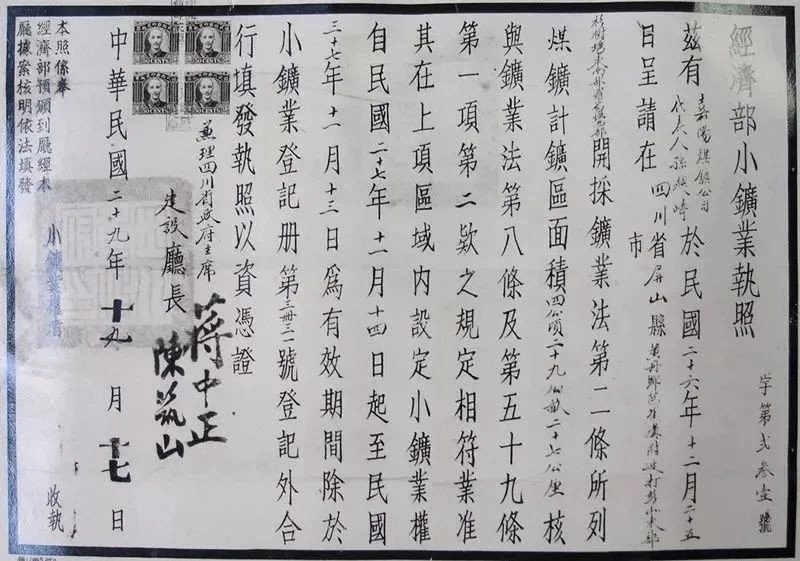 經濟部小鑛業執照
字第貳叁壹號
茲有嘉陽煤鑛公司
代表人孫越崎
於民國二十六年十二月二十五
日呈請在四川省屏山縣市黃丹鄉芭蕉溝附近打彭山東部
杉樹坳東南部開採鑛業法第二條所列
煤鑛計鑛區面積四公頃二十九公畝二十七公厘核
與鑛業法第八條及第五十九條
第一項第二欵之規定相符業准
其在上項區域內設定小鑛業權
自民國二十七年十一月十四日起至民國
三十七年十一月十三日為有效期間除於
小鑛業登記册第三册三一號登記外合
行填發執照以資憑證
兼理四川省政府主席 蔣中正
建設廳長 陳筑山
中華民國二十九年十九月十七日
小鑛業權者 收執
本照係奉
經濟部預頒到廳經本
廳據案核明依法填發